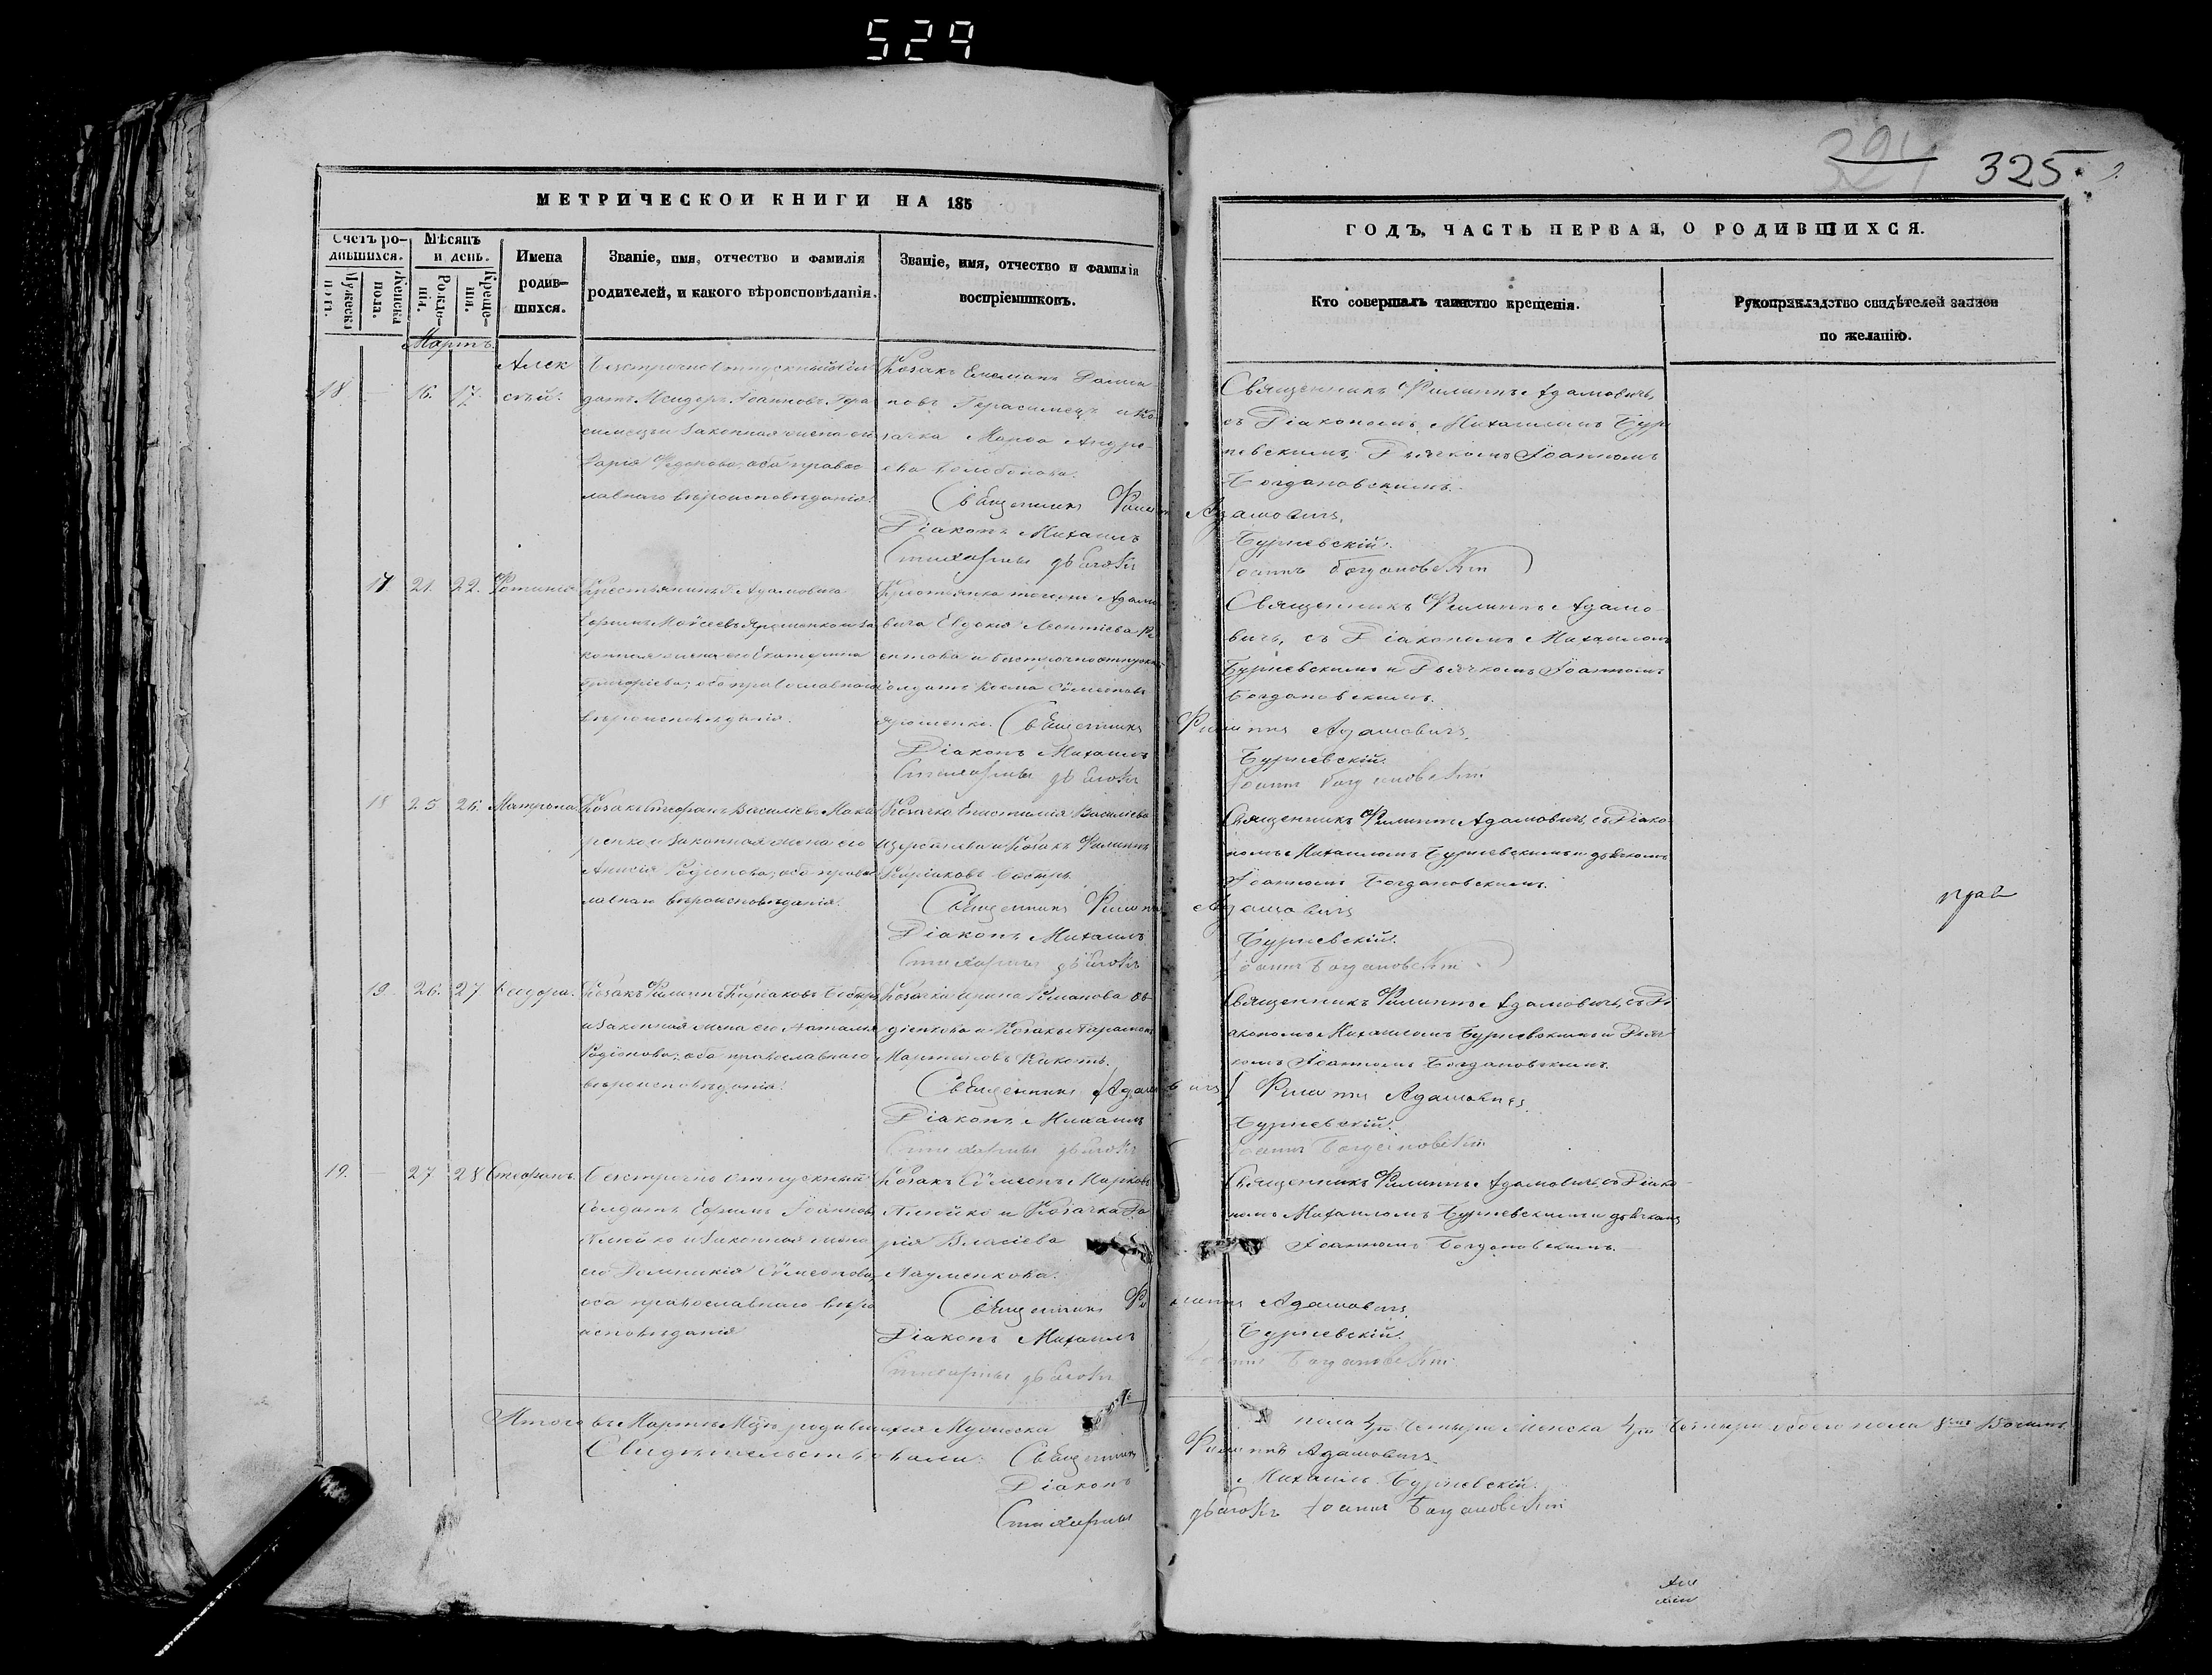 529
325
МЕТРИЧЕСКОЙ КНИГИ НА 185
Счетъ ро-
дившихся.
Мужеска
пола.
Женска
пола.
Мѣсяцъ
и день.
Рожде-
нія.
Креще-
нія.
Имена
родив-
шихся.
Званіе, имя, отчество и фамилія
родителей, и какого вѣроисповѣданія.
Званіе, имя, отчество и фамилія
воспріемниковъ.
Мартъ.
18. — 16. 17. Алек
сѣй.
Безсрочно Отпускный Сол
датъ Исидоръ Іоанновъ Гера
симецъ и Законная жена его
Дарія Федорова, оба правос
лавнаго вѣроисповѣданія.
Козакъ
Герасимецъ и Ко
зачка Марѳа Андре-
ева
Священникъ Филиппъ Адамовичъ.
Діаконъ Михаилъ Бурневскій.
Стихарный дьячокъ Іоаннъ Богдановскій
17 21. 22. Фотинія
Крестьянинъ Г. Адамовича
Ефимъ Моѵсеевъ и за
конная жена его Екатерина
Григоріева; оба православнаго
вѣроисповѣданія.
Крестьянка Адамо
вича Евдокія Леонтіева
и безсрочноотпускн
солдатъ Козма Сѵмеоновъ
Священникъ Филиппъ Адамовичъ.
Діаконъ Михаилъ Бурневскій.
Стихарный дьячокъ Іоаннъ Богдановскій
18 25 26. Матрона
Козакъ Стефанъ Василіевъ Мака
ренко и Законная жена его
Анисія Родіонова, оба правос
лавнаго вѣроисповѣданія.
Козачка Епистимія Василіева
и Козакъ Филиппъ
Священникъ Филиппъ Адамовичъ
Діаконъ Михаилъ Бурневскій.
Стихарный дьячокъ Іоаннъ Богдановскій
19. 26. 27 Ѳеодора.
Козакъ Филиппъ
и Законная жена его Наталія
Родіонова; оба православнаго
вѣроисповѣданія.
Козачка Ирина Романова
и Козакъ
Священникъ Филиппъ Адамовичъ
Діаконъ Михаилъ Бурневскій.
Стихарный дьячокъ Іоаннъ Богдановскій
19. — 27 28 Стефанъ.
Безсрочно Отпускный
Солдатъ Ефимъ Іоанновъ
и Законная жена
его Домникія Сѵмеонова,
оба православнаго вѣро
исповѣданія
Козакъ Сѵмеонъ Марковъ
и Козачка Да
рія Власіева
Науменкова.
Священникъ Филиппъ Адамовичъ.
Діаконъ Михаилъ Бурневскій.
Стихарный дьячокъ Іоаннъ Богдановскій
Итого въ Мартѣ М-цѣ родившихся Мужеска пола 4 Четыре Женска 4 Четыре обоего пола 8 Восемь
Свидѣтельствовали: Священникъ Филиппъ Адамовичъ.
Діаконъ Михаилъ Бурневскій.
Стихарный дьячокъ Іоаннъ Богдановскій
ГОДЪ, ЧАСТЬ ПЕРВАЯ, О РОДИВШИХСЯ.
Кто совершалъ таинство крещенія.
Рукоприкладство свидѣтелей записи
по желанію.
Священникъ Филиппъ Адамовичъ,
съ Діакономъ Михаиломъ Бур
невскимъ, Дьячкомъ Іоанномъ
Богдановскимъ.
Священникъ Филиппъ Адамо-
вичъ, съ Діакономъ Михаиломъ
Бурневскимъ и Дьячкомъ Іоанномъ
Богдановскимъ.
Священникъ Филиппъ Адамовичъ, съ Діако
номъ Михаиломъ Бурневскимъ и дьячкомъ
Іоанномъ Богдановскимъ.
Священникъ Филиппъ Адамовичъ, съ Ді
акономъ Михаиломъ Бурневскимъ и Дьяч
комъ Іоанномъ Богдановскимъ.
Священникъ Филиппъ Адамовичъ съ Діако
номъ Михаиломъ Бурневскимъ и дьячкомъ
Іоанномъ Богдановскимъ.